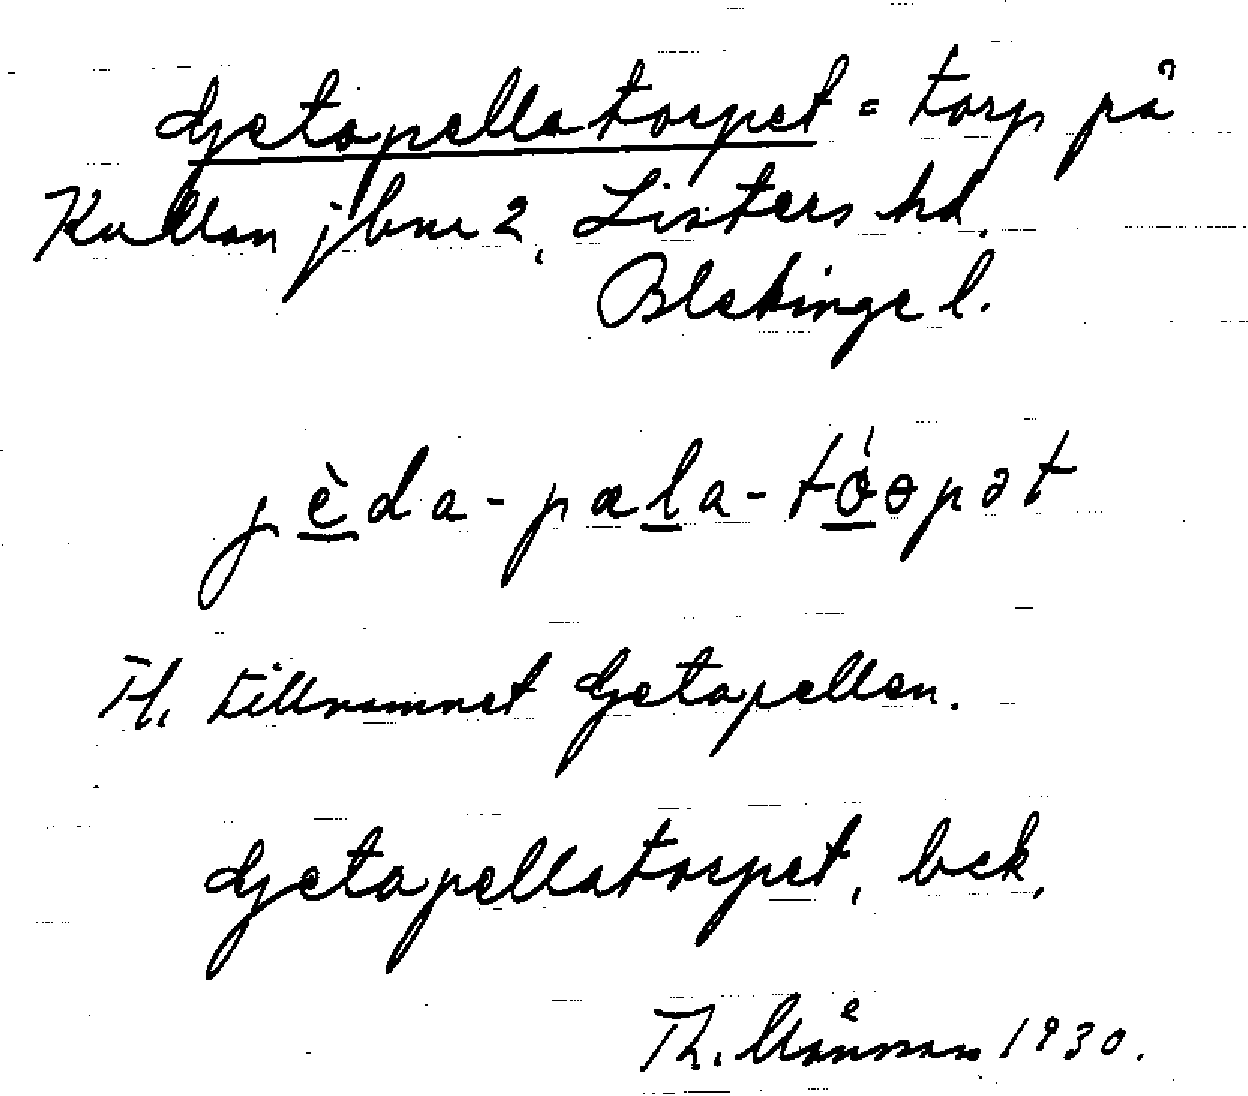 Gjetapellatorpet = torp på
Kullan jbnr 2, Listers hd.
Blekinge l.
jèda-pala-tóɵpət
Jf. tillnamnet Gjetapellan.
Gjetapellatorpet, bek.
Th. 1930.